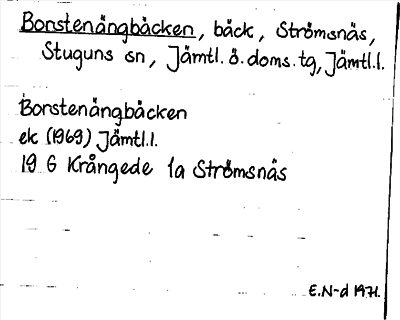 Borstenängbäcken, bäck, Strömsnäs,
Stuguns sn, Jämtl.ö.doms.tg, Jämtl.l.
Borstenängbäcken
ek (1969) Jämtl.l.
19 G Krångede 1a Strömsnäs
E.N-d 1971.